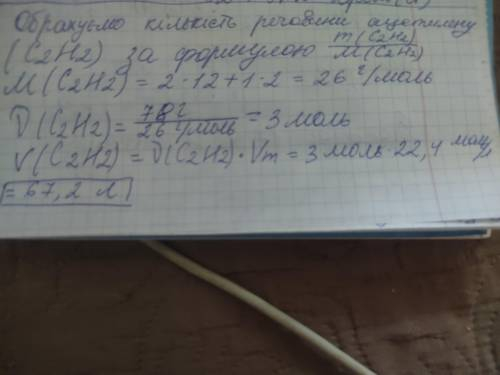 Обрахуємо кількість речовини ацетилену
(C2H2) за формулою m(C2H2)/M(C2H2)
M(C2H2) = 2·12+1·2 = 26 г/моль
ν(C2H2) = 78г/26 г/моль = 3 моль
V(C2H2) = ν(C2H2)·Vm = 3 моль·22,4
= 67,2 л